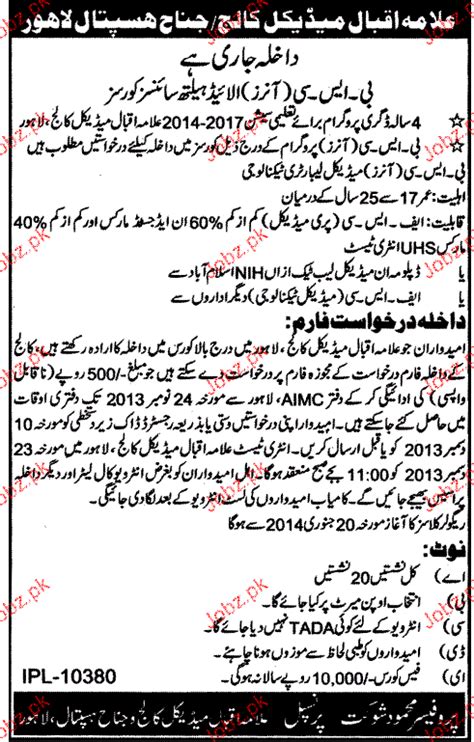 علامہ اقبال میڈیکل کالج/جناح ہسپتال لاہور
داخلہ جاری ہے
بی۔ایس۔سی (آنرز) الائیڈ ہیلتھ سائنسز کورسز
☆ 4 سالہ ڈگری پروگرام برائے تعلیمی سیشن 2017-2014 علامہ اقبال میڈیکل کالج، لاہور
☆ بی۔ایس۔سی (آنرز) پروگرام کے درج ذیل کورسز میں داخلہ کیلئے درخواستیں مطلوب ہیں
بی۔ایس۔سی (آنرز) میڈیکل لیبارٹری ٹیکنالوجی
اہلیت: عمر 17 سے 25 سال کے درمیان
قابلیت: ایف۔ایس۔سی (پری میڈیکل) کم از کم 60% ان ایڈجسٹڈ مارکس اور کم از کم 40%
مارکس UHS انٹری ٹیسٹ
یا ڈپلومہ ان میڈیکل لیب ٹیک از اں NIH اسلام آباد سے
یا ایف۔ایس۔سی (میڈیکل ٹیکنالوجی) دیگر اداروں سے
داخلہ درخواست فارم:
امیدواران جو علامہ اقبال میڈیکل کالج، لاہور میں درج بالا کورس میں داخلہ کا ارادہ رکھتے ہیں، کالج
کے داخلہ فارم درخواست کے مجوزہ فارم پر درخواست دے سکتے ہیں جو مبلغ -/500 روپے (ناقابل
واپسی) کی ادائیگی کر کے دفتر AIMC، لاہور سے مورخہ 24 نومبر 2013 تک دفتری اوقات
میں حاصل کئے جا سکتے ہیں۔ امیدوار اپنی درخواستیں دستی یا بذریعہ رجسٹرڈ ڈاک زیر دستخطی کو مورخہ 10
دسمبر 2013 کو یا قبل ارسال کریں۔ انٹری ٹیسٹ علامہ اقبال میڈیکل کالج، لاہور میں مورخہ 23
دسمبر 2013 کو 11:00 بجے صبح منعقد ہوگا۔ اہل امیدواران کو بغرض انٹرویو کال لیٹر اور دیگر داخلہ
پراسیس بھیجے جائیں گے۔ کامیاب امیدواروں کی لسٹ انٹرویو کے بعد لگا دی جائیگی۔
ریگولر کلاسز کا آغاز مورخہ 20 جنوری 2014 سے ہوگا
نوٹ:
اے) کل نشستیں 20 نشستیں
بی) انتخاب اوپن میرٹ پر کیا جائے گا۔
سی) انٹرویو کے لئے کوئی TADA نہیں دیا جائے گا۔
ڈی) امیدواروں کو طبی لحاظ سے موزوں ہونا چاہئے۔
ای) فیس کورس -/10,000 روپے سالانہ ہوگی۔ IPL-10380
پروفیسر محمود شوکت پرنسپل علامہ اقبال میڈیکل کالج و جناح ہسپتال، لاہور
Jobz.pk